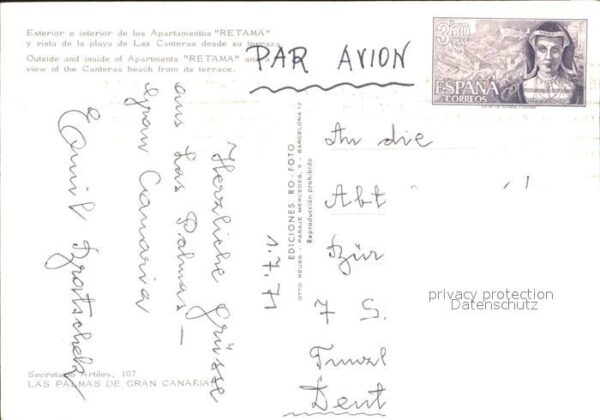 Exterior e interior de los Apartamentos "RETAMA"
y vista de la playa de Las Canteras desde su terraza.
Outside and inside of Apartments "RETAMA" and a
view of the Canteras beach from its terrace.
PAR AVION
3,50
PTAS
ESPAÑA
CORREOS
Herzliche Grüsse
aus Las Palmas –
Gran Canaria
Emil
1.7.71
EDICIONES RO-FOTO
PASAJE MERCEDES, 9 - BARCELONA 12
Reproducción prohibida
An die
Abt
7 S.
privacy protection
Datenschutz
Secretario Artiles, 107
LAS PALMAS DE GRAN CANARIA